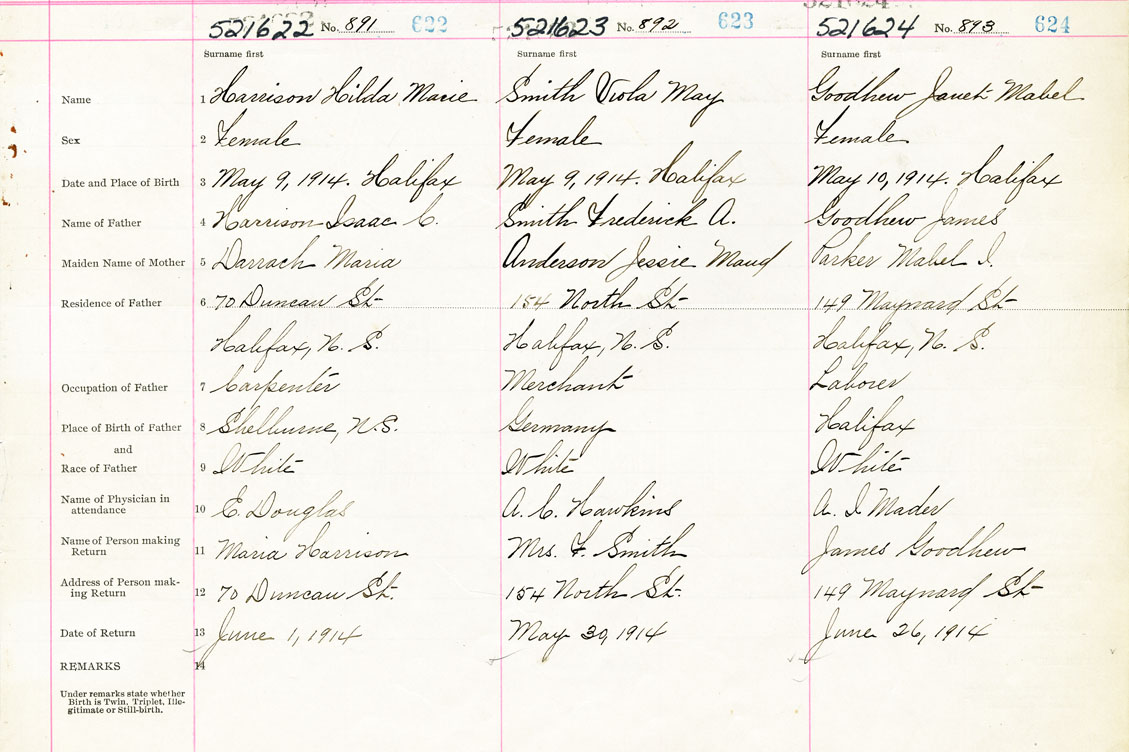 521622 No. 891 622 521623 No. 892 623 521624 No. 893 624
Surname first Surname first Surname first
Name 1 Harrison Hilda Marie Smith Viola May Goodhew Janet Mabel
Sex 2 Female Female Female
Date and Place of Birth 3 May 9, 1914. Halifax May 9, 1914. Halifax May 10, 1914. Halifax
Name of Father 4 Harrison Isaac C. Smith Frederick A. Goodhew James
Maiden Name of Mother 5 Darrach Maria Anderson Jessie Maud Parker Mabel I.
Residence of Father 6 70 Duncan St. 154 North St. 149 Maynard St.
Halifax, N. S. Halifax, N. S. Halifax, N. S.
Occupation of Father 7 Carpenter Merchant Laborer
Place of Birth of Father 8 Shelburne, N.S. Germany Halifax
and
Race of Father 9 White White White
Name of Physician in
attendance 10 E. Douglas A. C. Hawkins A. I Mader
Name of Person making
Return 11 Maria Harrison Mrs. F. Smith James Goodhew
Address of Person mak-
ing Return 12 70 Duncan St. 154 North St. 149 Maynard St.
Date of Return 13 June 1, 1914 May 30, 1914 June 26, 1914
REMARKS 14
Under remarks state whether
Birth is Twin, Triplet, Ille-
gitimate or Still-birth.